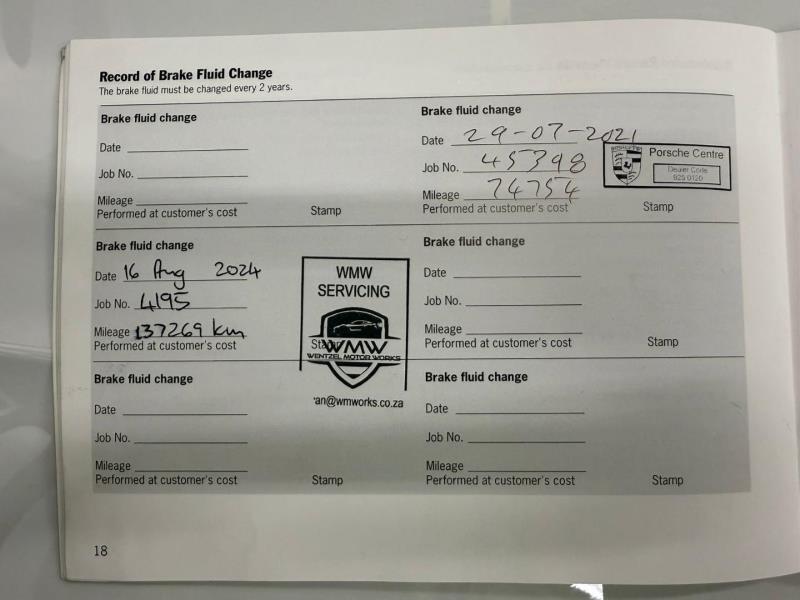 Record of Brake Fluid Change
The brake fluid must be changed every 2 years.
Brake fluid change
Date
Job No.
Mileage
Performed at customer's cost Stamp
Brake fluid change
Date 29-07-2021
Job No. 45398
Mileage 74754
Performed at customer's cost Stamp
Porsche Centre
Dealer Code
925 0120
Brake fluid change
Date 16 Aug 2024
Job No. 4195
Mileage 137269 km
Performed at customer's cost Stamp
WMW
SERVICING
WMW
WENTZEL MOTOR WORKS
an@wmworks.co.za
Brake fluid change
Date
Job No.
Mileage
Performed at customer's cost Stamp
Brake fluid change
Date
Job No.
Mileage
Performed at customer's cost Stamp
Brake fluid change
Date
Job No.
Mileage
Performed at customer's cost Stamp
18